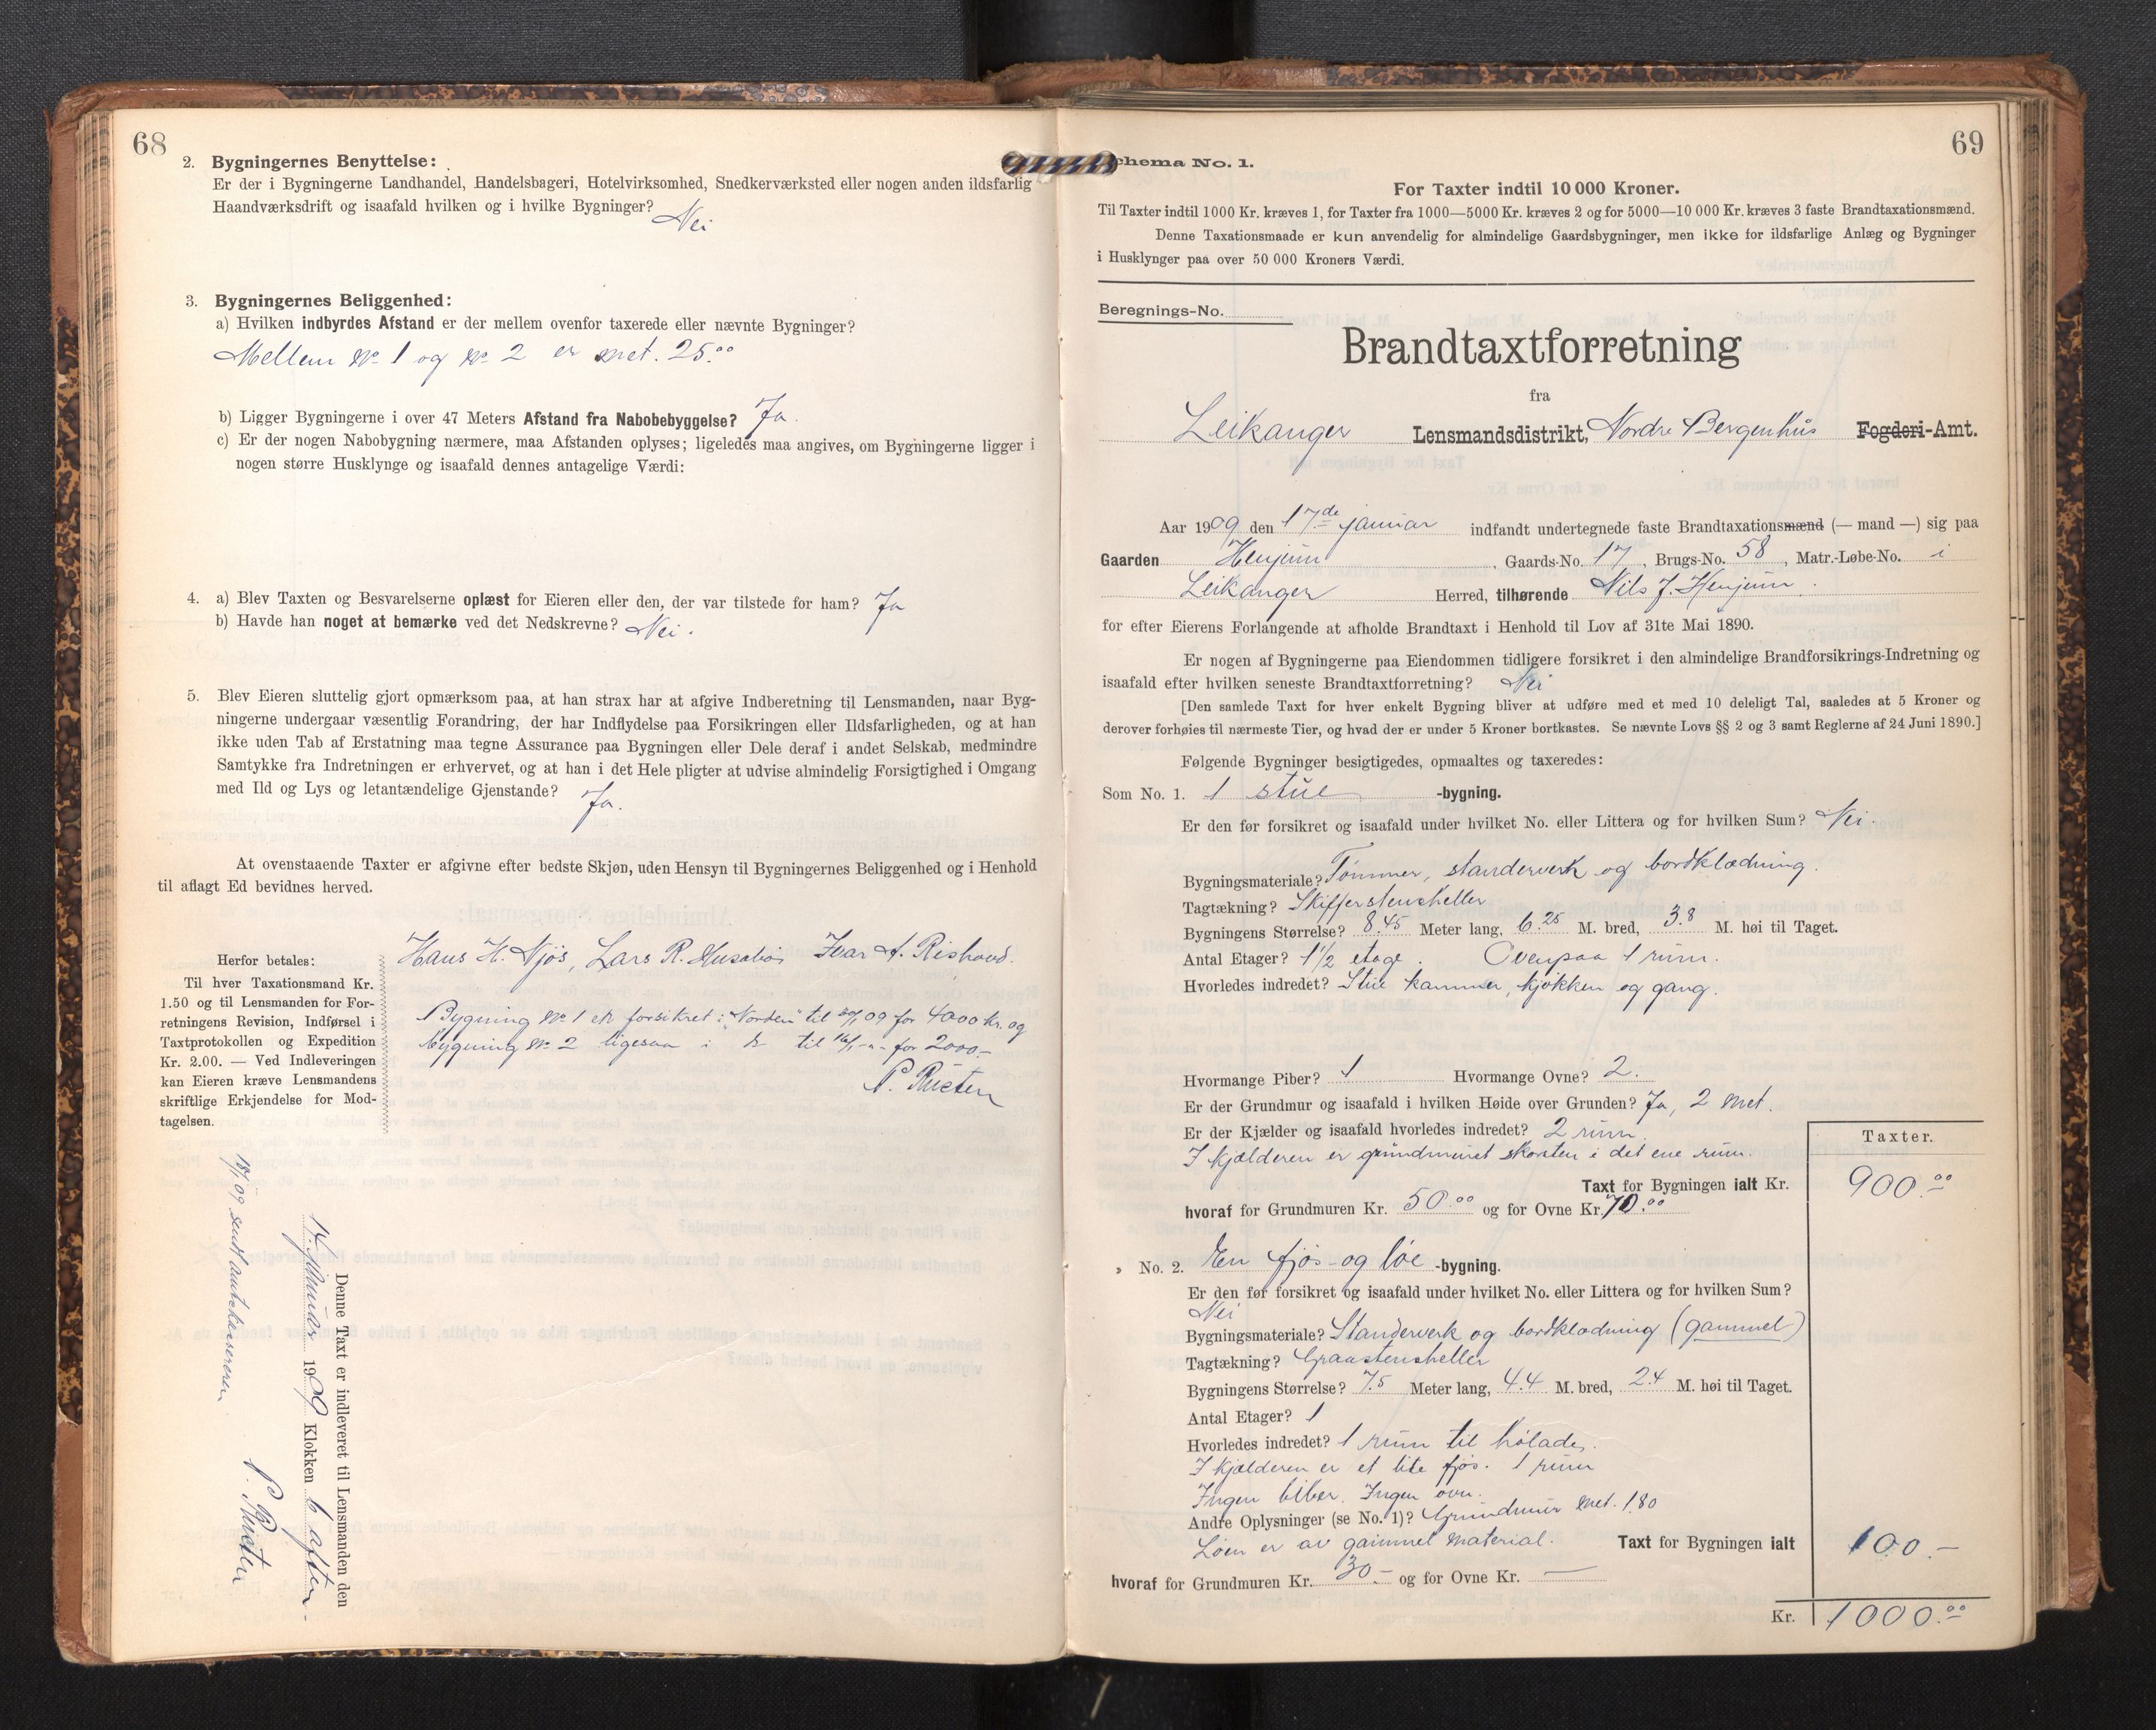 68
2. Bygningernes Benyttelse:
Er der i Bygningerne Landhandel, Handelsbageri, Hotelvirksomhed, Snedkerværksted eller nogen anden ildsfarlig
Haandværksdrift og isaafald hvilken og i hvilke Bygninger? Nei
3. Bygningernes Beliggenhed:
a) Hvilken indbyrdes Afstand er der mellem ovenfor taxerede eller nævnte Bygninger?
Mellem No. 1 og No. 2 er met. 25.00
b) Ligger Bygningerne i over 47 Meters Afstand fra Nabobebyggelse? Ja.
c) Er der nogen Nabobygning nærmere, maa Afstanden oplyses; ligeledes maa angives, om Bygningerne ligger i
nogen større Husklynge og isaafald dennes antagelige Værdi:
4. a) Blev Taxten og Besvarelserne oplæst for Eieren eller den, der var tilstede for ham? Ja
b) Havde han noget at bemærke ved det Nedskrevne? Nei.
5. Blev Eieren sluttelig gjort opmærksom paa, at han strax har at afgive Indberetning til Lensmanden, naar Byg-
ningerne undergaar væsentlig Forandring, der har Indflydelse paa Forsikringen eller Ildsfarligheden, og at han
ikke uden Tab af Erstatning maa tegne Assurance paa Bygningen eller Dele deraf i andet Selskab, medmindre
Samtykke fra Indretningen er erhvervet, og at han i det Hele pligter at udvise almindelig Forsigtighed i Omgang
med Ild og Lys og letantændelige Gjenstande? Ja.
At ovenstaaende Taxter er afgivne efter bedste Skjøn, uden Hensyn til Bygningernes Beliggenhed og i Henhold
til aflagt Ed bevidnes herved.
Hans H. Njøs, Lars R. Husabø Ivar A. Rishovd.
Herfor betales:
Til hver Taxationsmand Kr.
1.50 og til Lensmanden for For-
retningens Revision, Indførsel i
Taxtprotokollen og Expedition
Kr. 2.00. — Ved Indleveringen
kan Eieren kræve Lensmandens
skriftlige Erkjendelse for Mod-
tagelsen.
Bygning No. 1 er forsikret i "Norden" til 09 for 4000 kr. og
bygning No. 2 ligesaa i do til for 2000.-
P. Risten
Denne Taxt er indleveret til Lensmanden den
17. januar 1909 Klokken 6 aften.
P. Risten
18/1 09 sendt amtskassereren
69
Schema No. 1.
For Taxter indtil 10 000 Kroner.
Til Taxter indtil 1000 Kr. kræves 1, for Taxter fra 1000—5000 Kr. kræves 2 og for 5000—10 000 Kr. kræves 3 faste Brandtaxationsmænd.
Denne Taxationsmaade er kun anvendelig for almindelige Gaardsbygninger, men ikke for ildsfarlige Anlæg og Bygninger
i Husklynger paa over 50 000 Kroners Værdi.
Beregnings-No.
Brandtaxtforretning
fra
Leikanger Lensmandsdistrikt, Nordre Bergenhus Fogderi-Amt.
Aar 1909 den 17de januar indfandt undertegnede faste Brandtaxationsmænd (— mand —) sig paa
Gaarden Henjum, Gaards-No. 17, Brugs-No. 58, Matr.-Løbe-No. i
Leikanger Herred, tilhørende Nils J. Henjum.
for efter Eierens Forlangende at afholde Brandtaxt i Henhold til Lov af 31te Mai 1890.
Er nogen af Bygningerne paa Eiendommen tidligere forsikret i den almindelige Brandforsikrings-Indretning og
isaafald efter hvilken seneste Brandtaxtforretning? Nei
[Den samlede Taxt for hver enkelt Bygning bliver at udføre med et med 10 deleligt Tal, saaledes at 5 Kroner og
derover forhøies til nærmeste Tier, og hvad der er under 5 Kroner bortkastes. Se nævnte Lovs §§ 2 og 3 samt Reglerne af 24 Juni 1890.]
Følgende Bygninger besigtigedes, opmaaltes og taxeredes:
Som No. 1. 1 stue -bygning.
Er den før forsikret og isaafald under hvilket No. eller Littera og for hvilken Sum? Nei.
Bygningsmateriale? Tømmer, standerverk og bordklædning.
Tagtækning? Skifferstensheller
Bygningens Størrelse? 8.45 Meter lang, 6.25 M. bred, 3.8 M. høi til Taget.
Antal Etager? 1 1/2 etage. Ovenpaa 1 rum.
Hvorledes indredet? Stue kammer, kjøkken og gang.
Hvormange Piber? 1 Hvormange Ovne? 2.
Er der Grundmur og isaafald i hvilken Høide over Grunden? Ja, 2 met.
Er der Kjælder og isaafald hvorledes indredet? 2 rum.
I kjælderen er grundmuret skorsten i det ene rum.
Taxter.
Taxt for Bygningen ialt Kr. 900.00
hvoraf for Grundmuren Kr. 50.00 og for Ovne Kr. 70.00
» No. 2. En fjøs- og løe -bygning.
Er den før forsikret og isaafald under hvilket No. eller Littera og for hvilken Sum?
Nei
Bygningsmateriale? Standerverk og bordklædning (gammel)
Tagtækning? Graastensheller
Bygningens Størrelse? 7.5 Meter lang, 4.4 M. bred, 2.4 M. høi til Taget.
Antal Etager? 1
Hvorledes indredet? 1 rum til høladе.
I kjælderen er et lite fjøs. 1 rum
Ingen biber. Ingen ovn.
Andre Oplysninger (se No. 1)? Grundmur met. 1.80
Løen er av gammel material. Taxt for Bygningen ialt 100.-
hvoraf for Grundmuren Kr. 30.- og for Ovne Kr. —
Kr. 1000.00